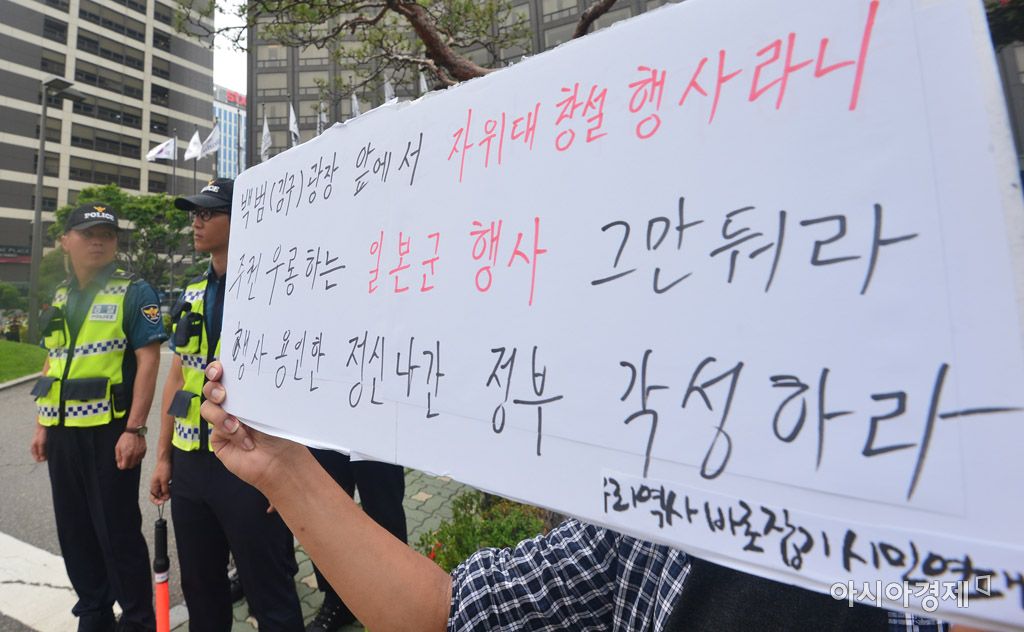 백범(김구)광장 앞에서 자위대 창설 행사라니
주권 우롱하는 일본군 행사 그만둬라
행사 용인한 정신나간 정부 각성하라
역사 바로잡기 시민연대
아시아경제
POLICE
POLICE
경찰